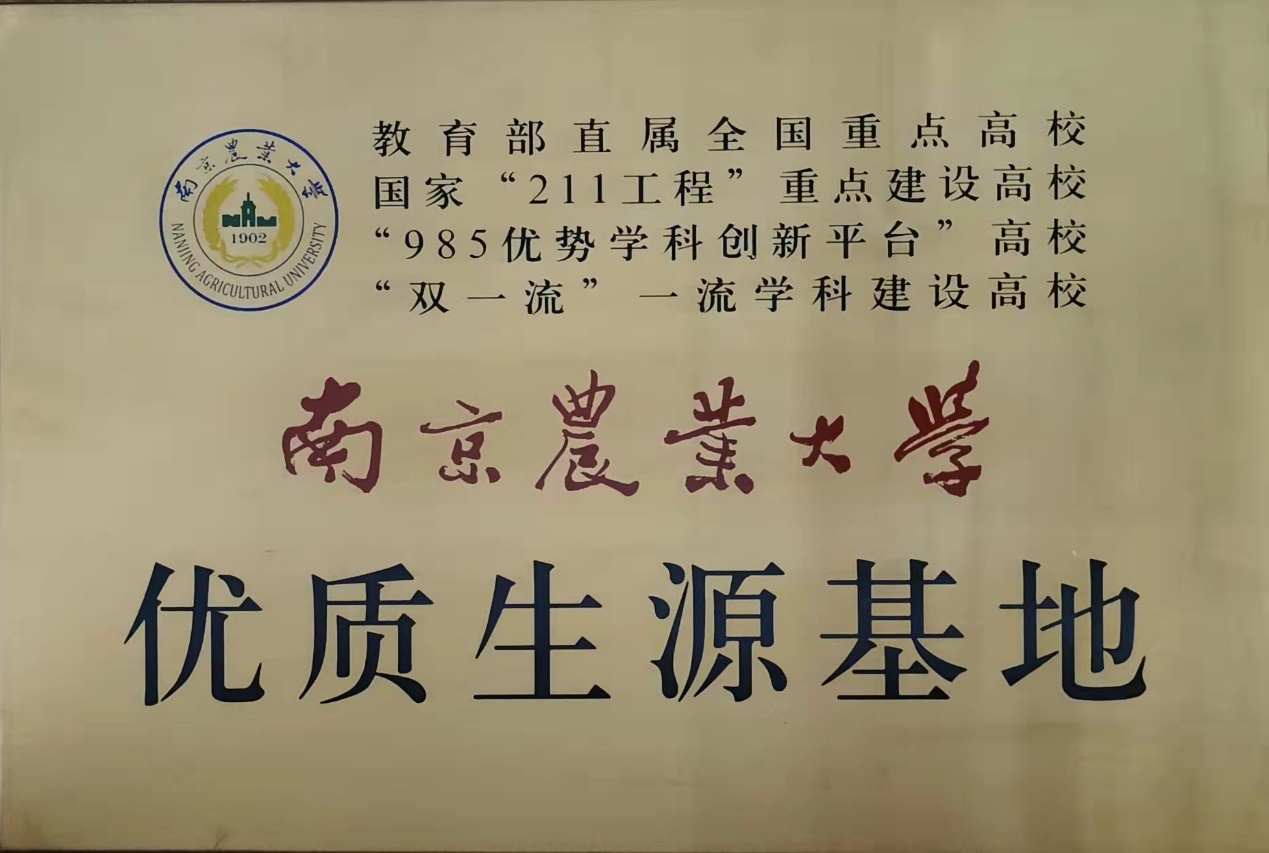 教育部直属全国重点高校
国家“211工程”重点建设高校
“985优势学科创新平台”高校
“双一流”一流学科建设高校
南京農業大学
1902
NANJING AGRICULTURAL UNIVERSITY
南京農業大学
优质生源基地